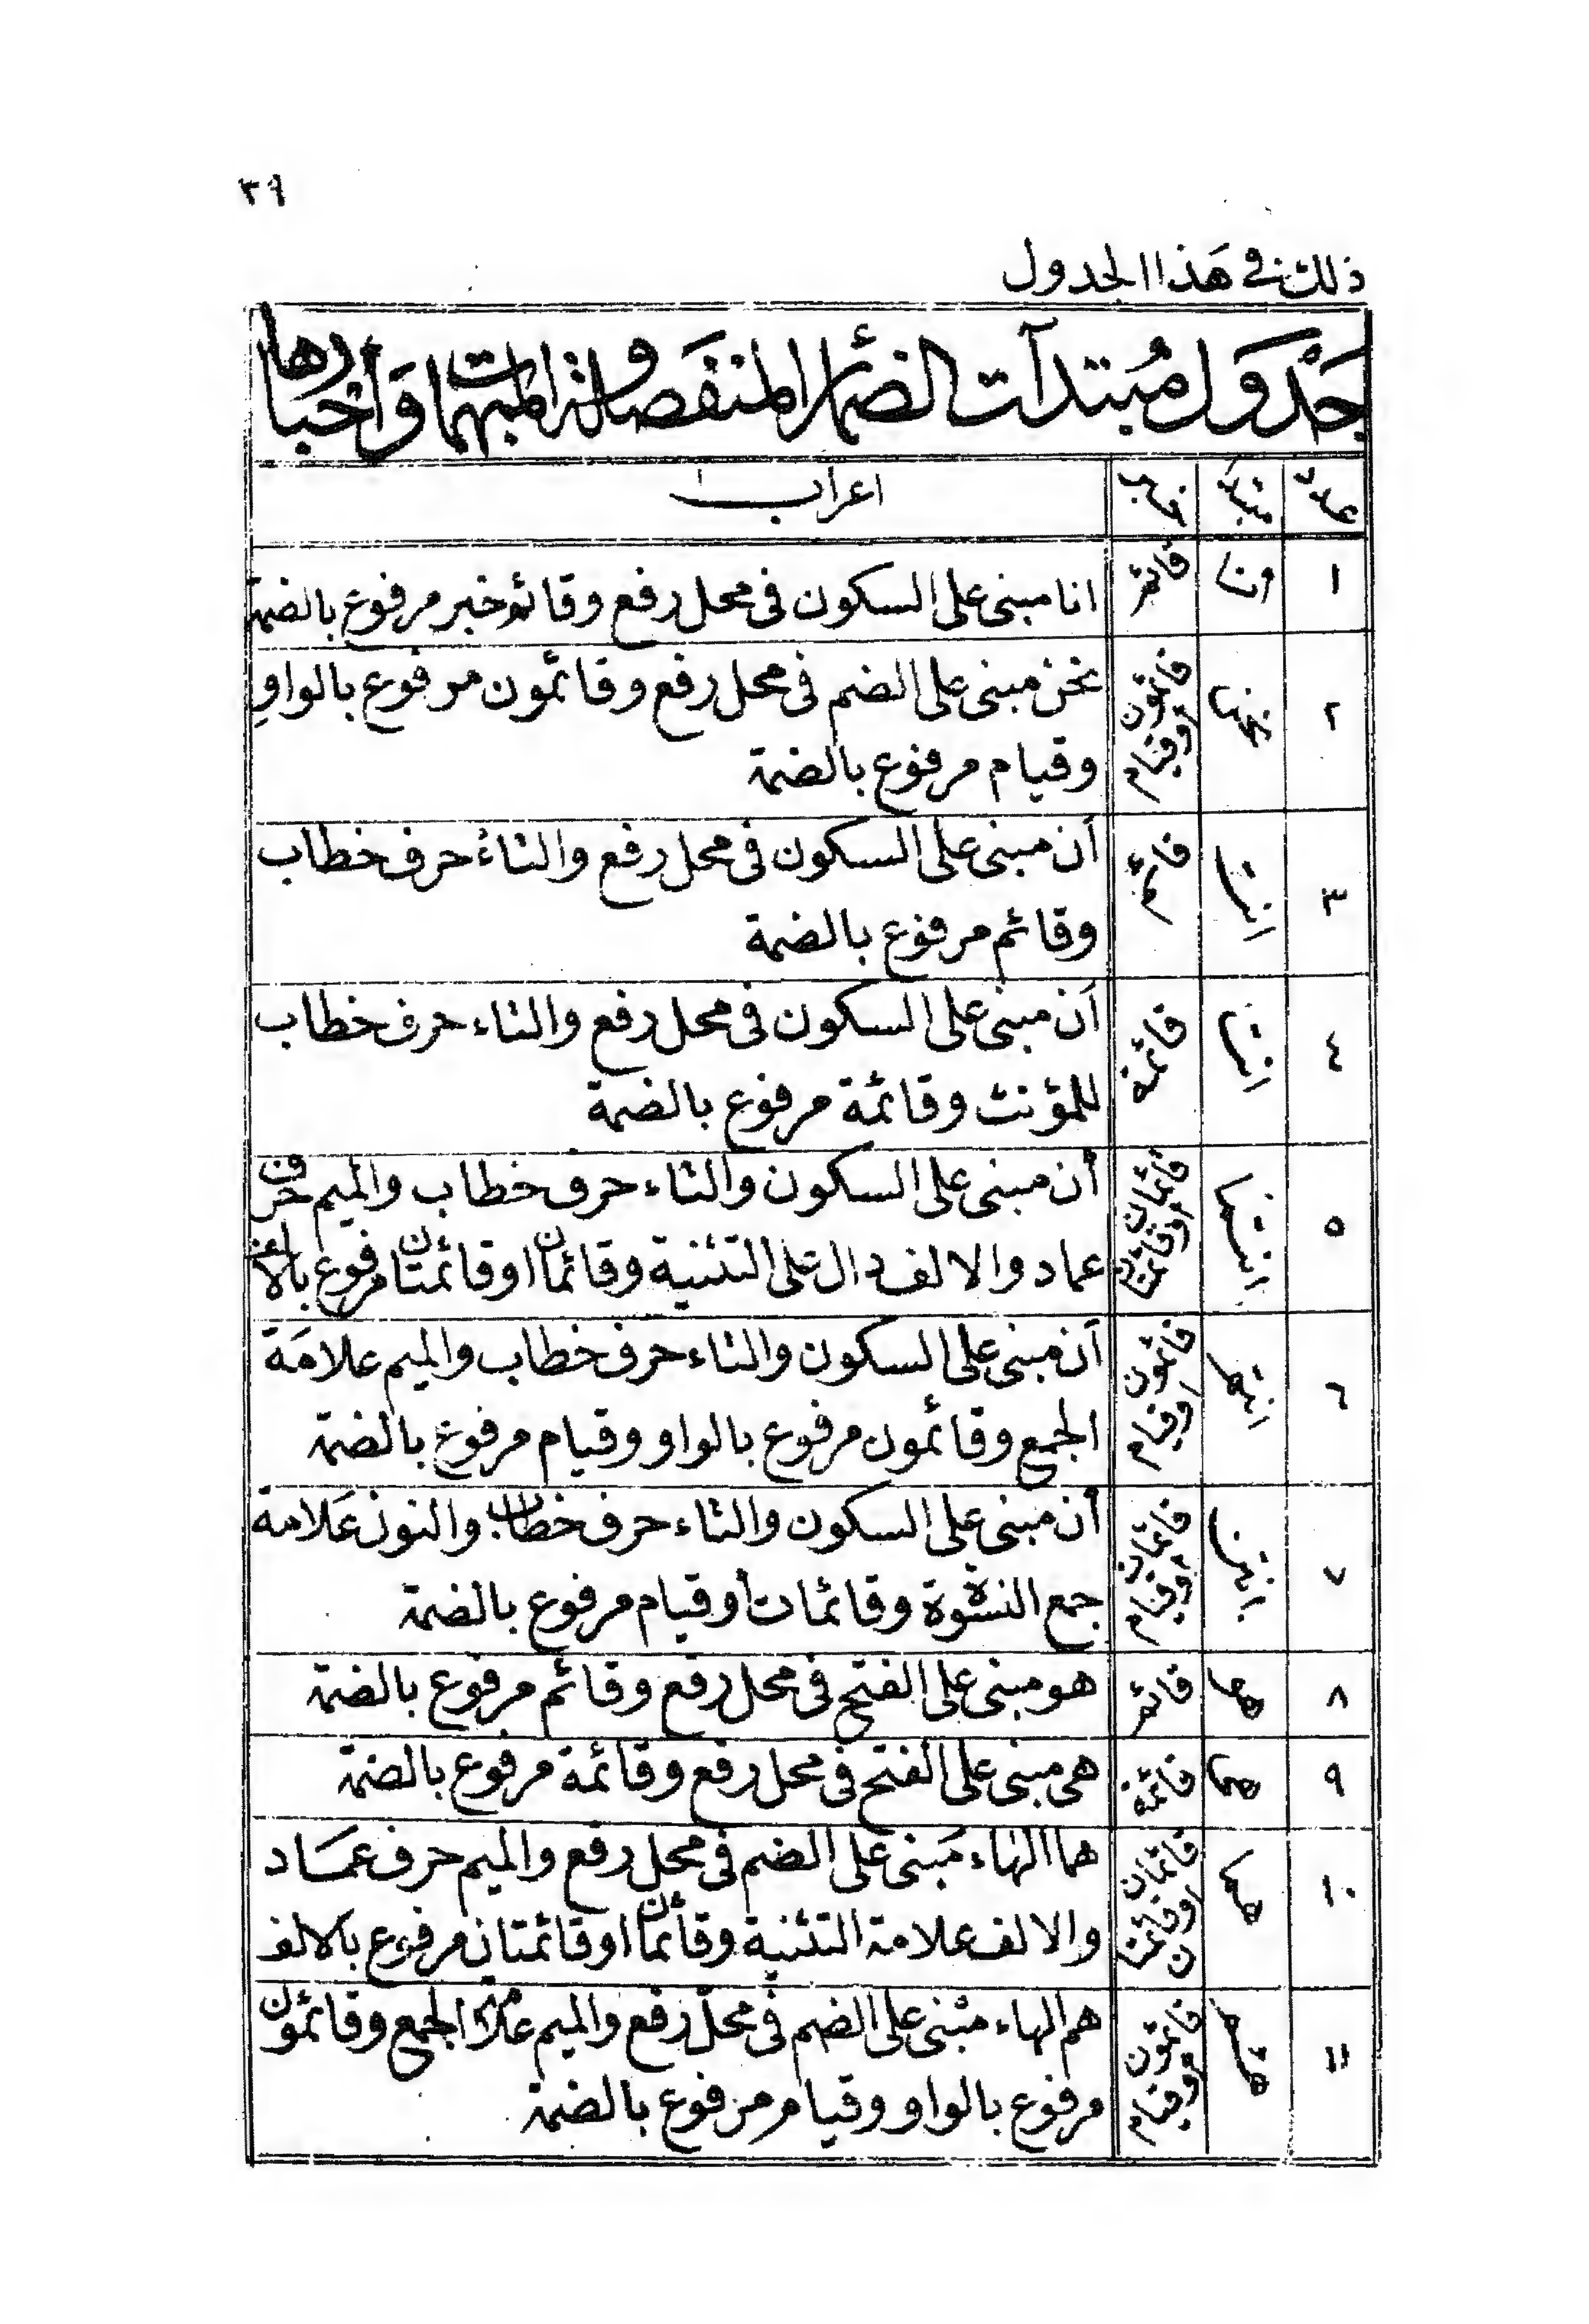 ٣٩
ذلك في هَذا الجدول
جَدْوَل مُبتدآت الضمائر المنفَصلة والمبهمات وَأَخبارها
عدد مبتدأ خبر اعراب
١ انا قائم انا مبنى على السكون فى محل رفع وقائم خبر مرفوع بالضمة
٢ نحن قائمون اوقيام نحن مبنى على الضم فى محل رفع وقائمون مرفوع بالواو
وقيام مرفوع بالضمة
٣ انت قائم أن مبنى على السكون فى محل رفع والتاءُ حرف خطاب
وقائم مرفوع بالضمة
٤ انت قائمة أَن مبنى على السكون فى محل رفع والتاء حرف خطاب
للمؤنث وقائمة مرفوع بالضمة
٥ انتما قائمان اوقائمتان أن مبنى على السكون والتاء حرف خطاب والميم حرف
عماد والالف دال على التثنية وقائمان اوقائمتان مرفوع بالالف
٦ انتم قائمون اوقيام أَن مبنى على السكون والتاء حرف خطاب والميم علامَة
الجمع وقائمون مرفوع بالواو وقيام مرفوع بالضمة
٧ انتن قائمات اوقيام أن مبنى على السكون والتاء حرف خطاب والنون عَلامة
جمع النسوة وقائمات أوقيام مرفوع بالضمة
٨ هو قائم هو مبنى على الفتح فى محل رفع وقائم مرفوع بالضمة
٩ قائمة هى مبنى على الفتح فى محل رفع وقائمة مرفوع بالضمة
١٠ هما قائمان اوقائمتان هما الهاء مَبنى على الضم فى محل رفع والميم حرف عمَاد
والالف علامة التثنية وقائمان اوقائمتان مرفوع بالالف
١١ هم قائمون اوقيام هم الهاء مبْنى على الضم فى محلّ رفع والميم علامة الجمع وقائمون
مرفوع بالواو وقيام مرفوع بالضمة